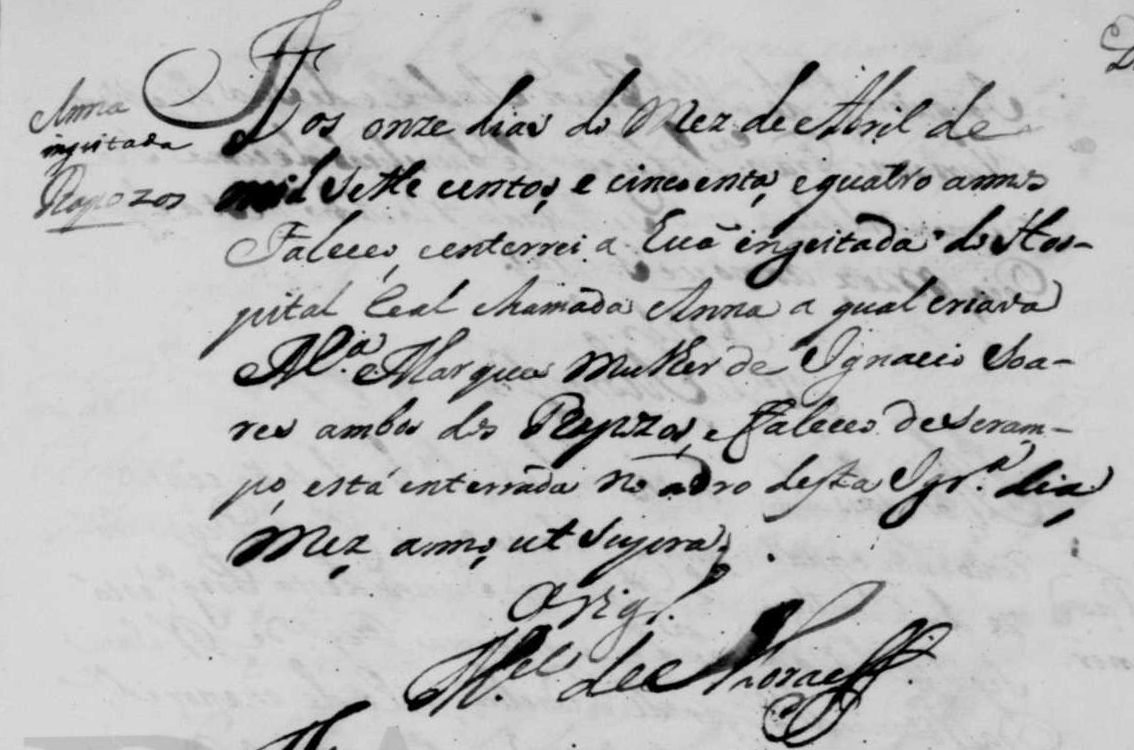 Anna
ingeitada
Rapozos
Aos onze dias do Mez de Abril de
mil Sette centos, e cincoenta, e quatro annos
Faleceo, e enterrei a Eũa ingeitada do Hos-
pital Real chamada Anna a qual criava
M.ª Marques Mulher de Ignacio Soa-
res ambos dos Rapozos, e Faleceo de seram-
po, está enterrada no adro desta Igr.ª dia
Mez, anno, ut supra.
O Vigr.
M.el de Moraes